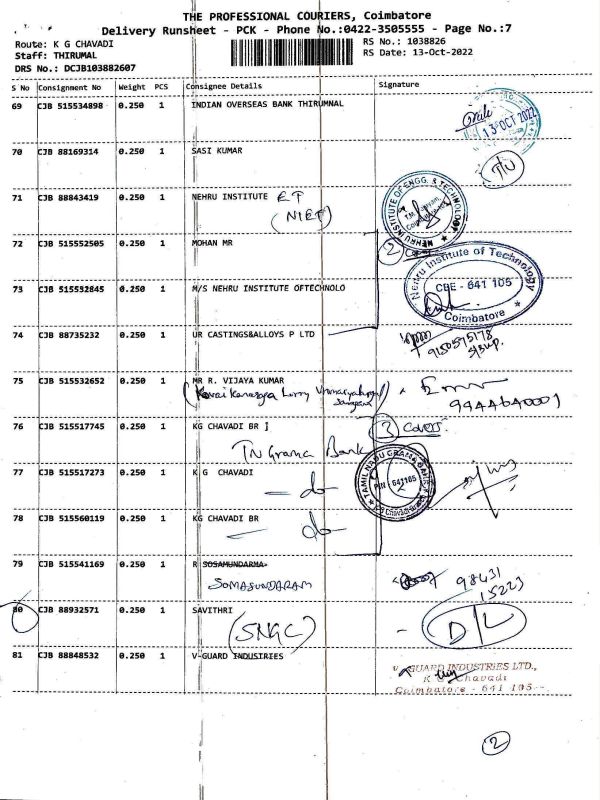 THE PROFESSIONAL COURIERS, Coimbatore
Delivery Runsheet - PCK - Phone No.:0422-3505555 - Page No.:7
Route: K G CHAVADI
RS No.: 1038826
Staff: THIRUMAL
RS Date: 13-Oct-2022
DRS No.: DCJB103882607
S No Consignment No Weight PCS Consignee Details Signature
69 CJB 515534898 0.250 1 INDIAN OVERSEAS BANK THIRUMNAL
13 OCT 2022
70 CJB 88169314 0.250 1 SASI KUMAR
71 CJB 88843419 0.250 1 NEHRU INSTITUTE ET
(NIET)
NEHRU INSTITUTE OF ENGG. & TECHNOLOGY
72 CJB 515552505 0.250 1 MOHAN MR
2
73 CJB 515532845 0.250 1 M/S NEHRU INSTITUTE OFTECHNOLO
Nehru Institute of Technology
CBE - 641 105
Coimbatore
74 CJB 88735232 0.250 1 UR CASTINGS&ALLOYS P LTD
9150575178
75 CJB 515532652 0.250 1 MR R. VIJAYA KUMAR
9444640001
76 CJB 515517745 0.250 1 KG CHAVADI BR
3 covers
TN Grama Bank
77 CJB 515517273 0.250 1 K G CHAVADI
TAMIL NADU GRAMA BANK
PIN - 641105
K G Chavadi Branch
78 CJB 515560119 0.250 1 KG CHAVADI BR
79 CJB 515541169 0.250 1 R SOSAMUNDARMA
SOMASUNDARAM
98431
15223
80 CJB 88932571 0.250 1 SAVITHRI
(SNGC)
D/L
81 CJB 88848532 0.250 1 V-GUARD INDUSTRIES
V-GUARD INDUSTRIES LTD.,
K G Chavadi
Coimbatore - 641 105
2